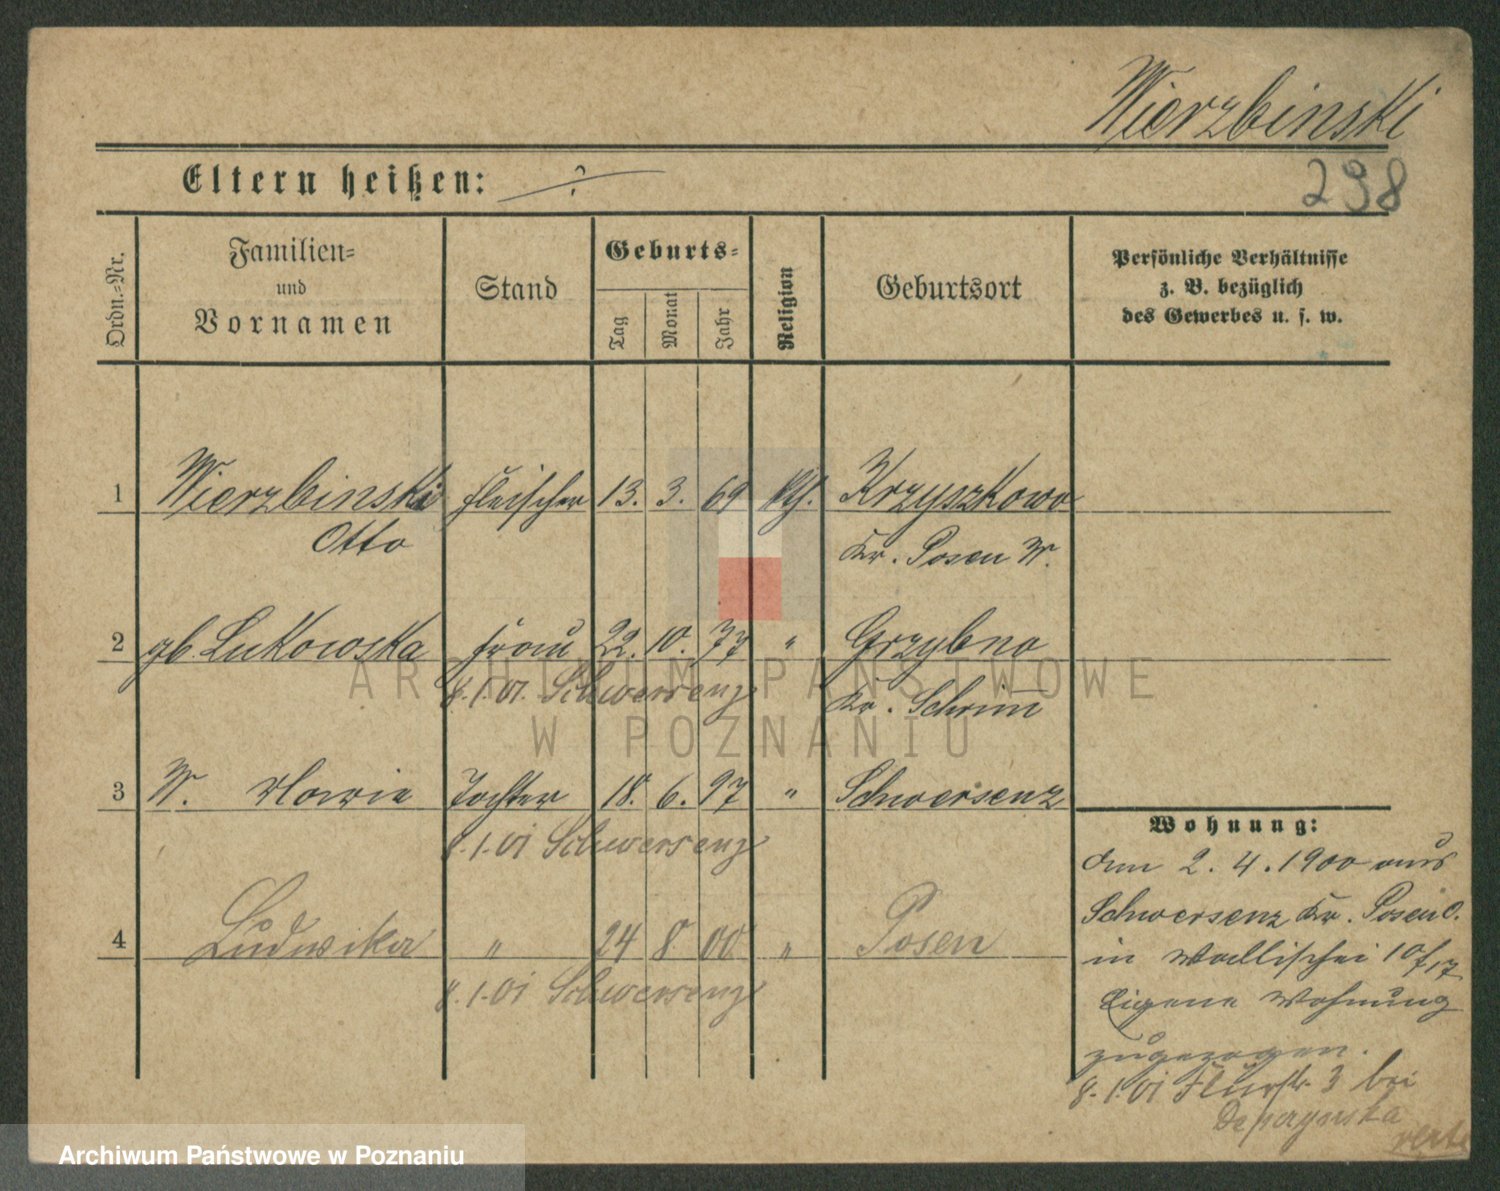 Wierzbinski
298
Eltern heißen: ?
Ordn.-Nr.
Familien- und Vornamen
Stand
Geburts-
Tag
Monat
Jahr
Religion
Geburtsort
Persönliche Verhältnisse
z. B. bezüglich
des Gewerbes u. s. w.
1 Wierzbinski Fleischer 13. 3. 69 Krzyszkowo
Otto Kr. Posen W.
2 gb. Lukowska Frau 22. 10. 77 " Grzybno
8.1.01. Schwersenz Kr. Schrimm
3 W. Maria Tochter 18. 6. 97 " Schwersenz
8.1.01 Schwersenz
4 Ludwika " 24 8 00 " Posen
8.1.01 Schwersenz
Wohnung:
den 2. 4. 1900 aus
Schwersenz Kr. Posen O.
in Wallischei 10/17
Eigene Wohnung
zugezogen.
8.1.01 Flurstr. 3 bei
verte
ARCHIWUM PAŃSTWOWE
W POZNANIU
Archiwum Państwowe w Poznaniu